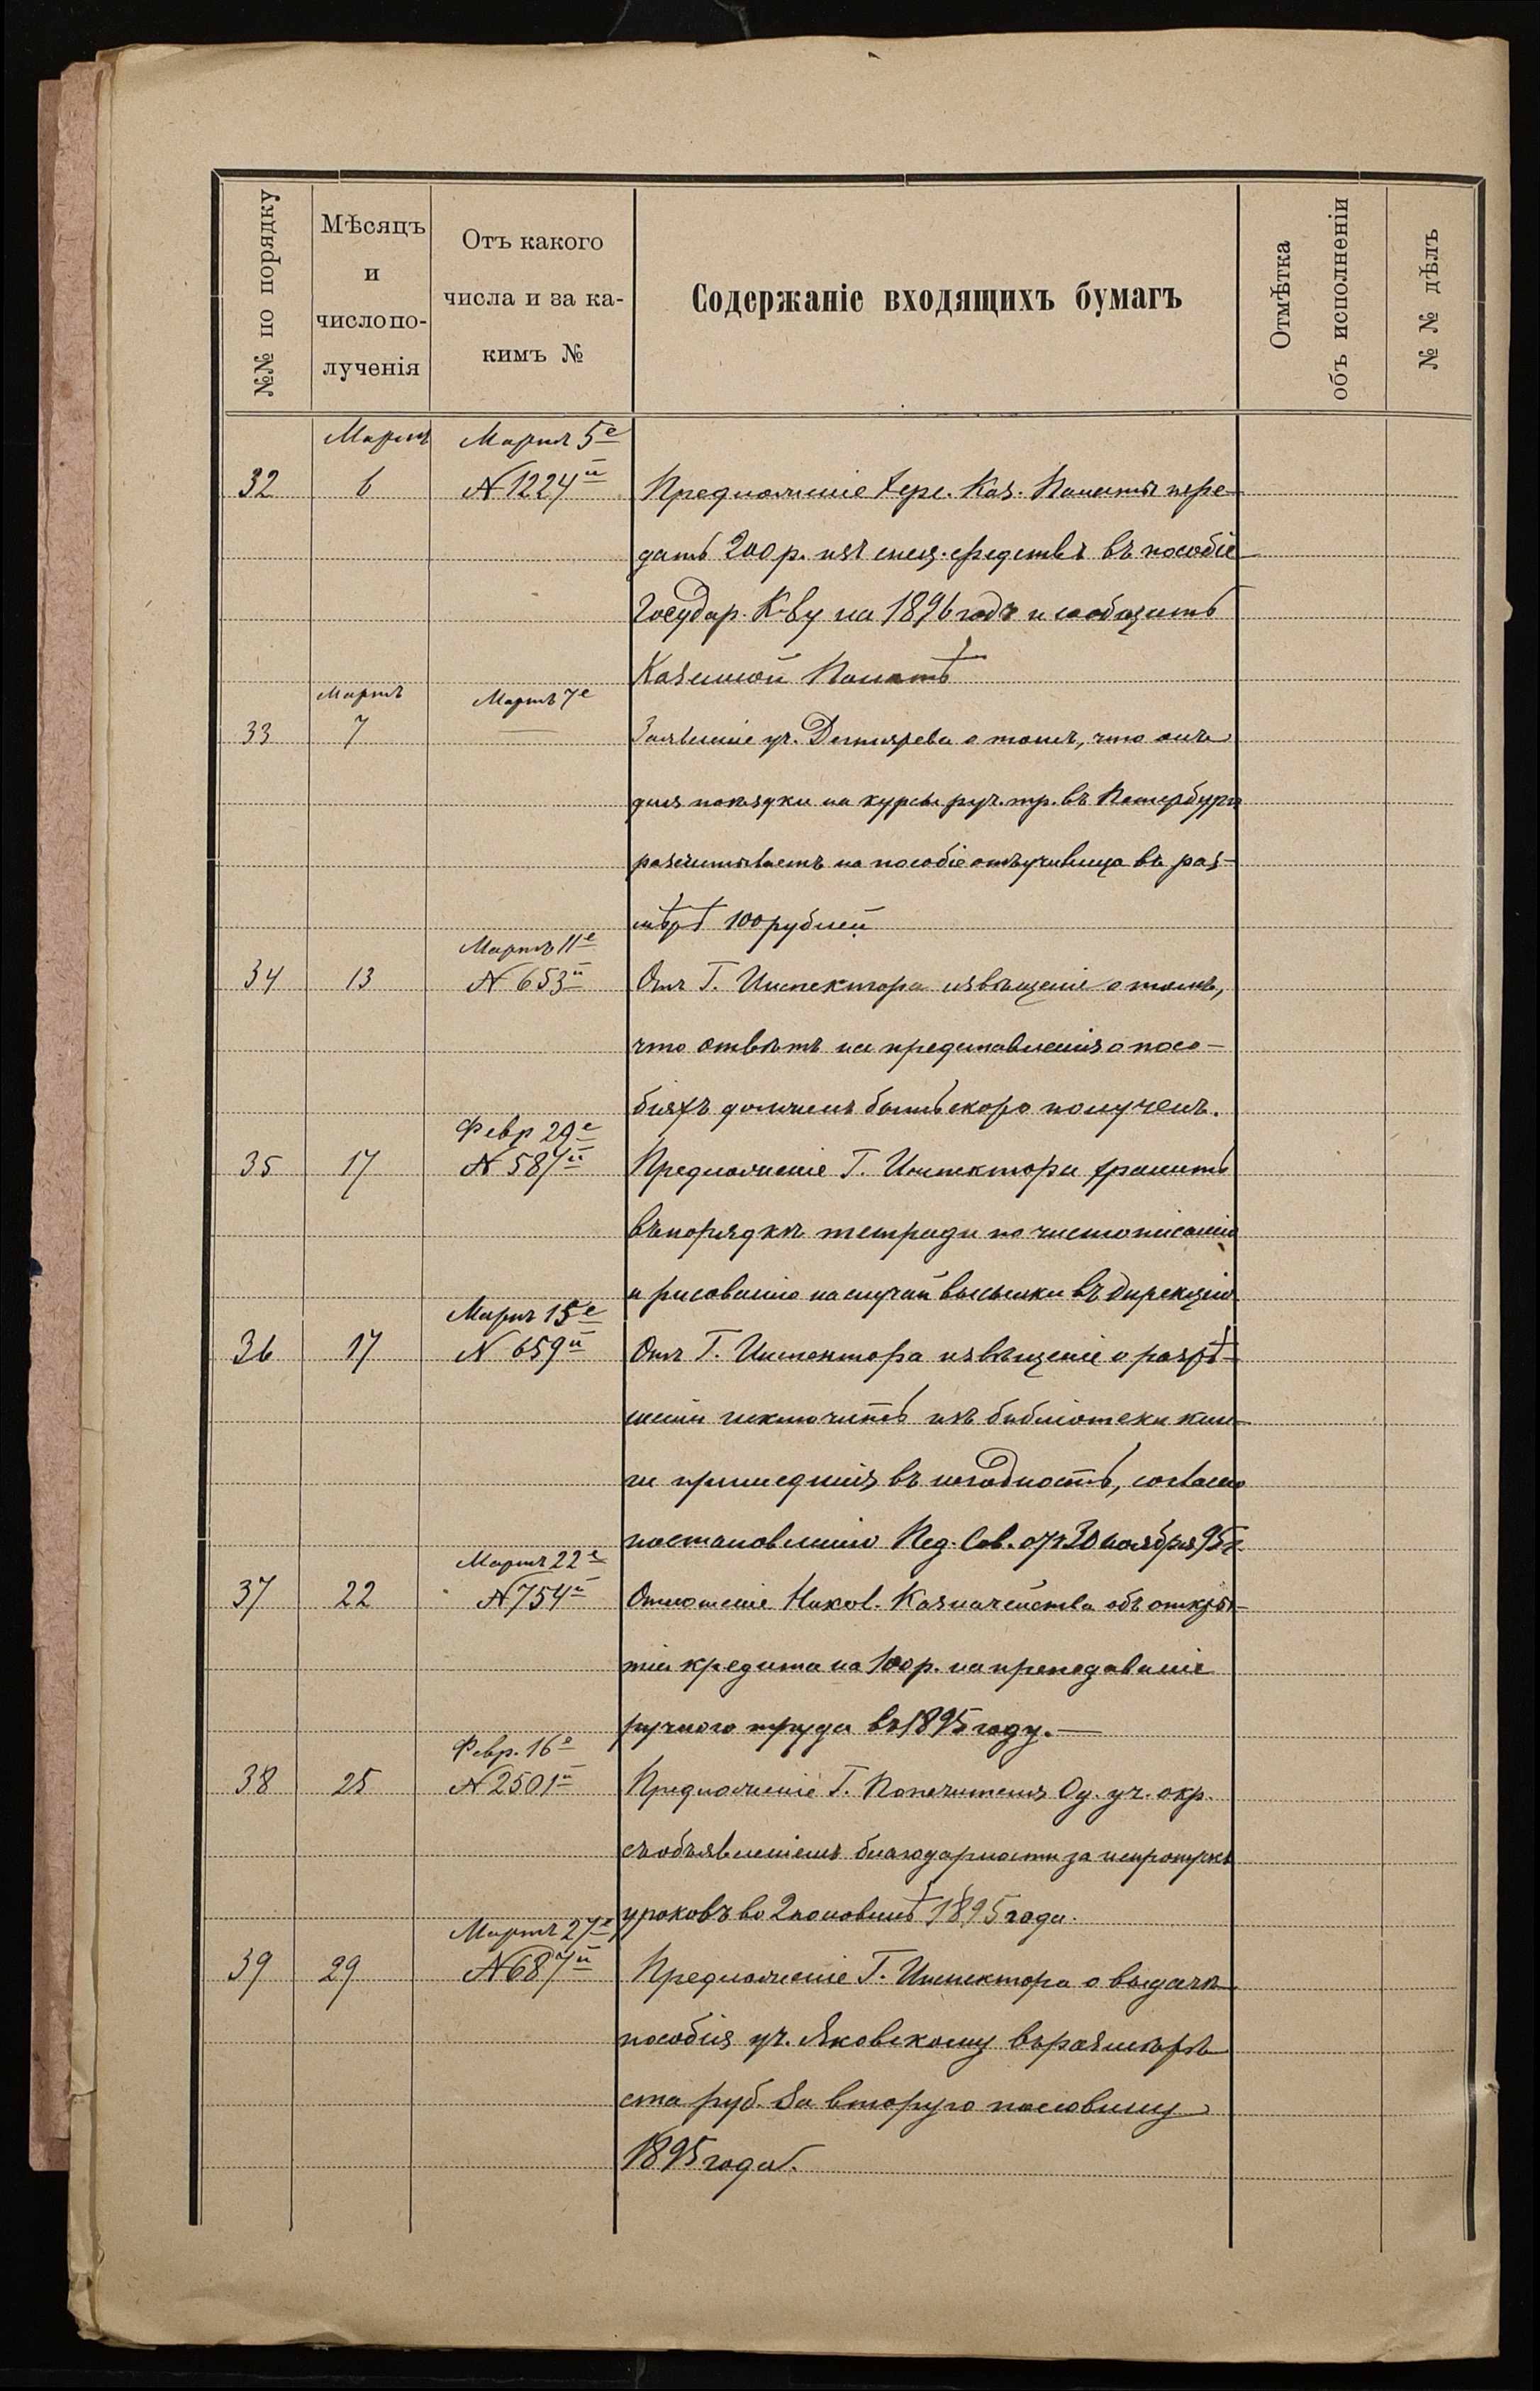 №№ по порядку
Мѣсяцъ
и
число по-
лученія
Отъ какого
числа и за ка-
кимъ №
Содержаніе входящихъ бумагъ
Отмѣтка
объ исполненіи
№ № дѣлъ
Мартъ Мартъ 5е
32 6 № 1224й Предложеніе Херс. Каз. Палаты пере-
дать 200 р. изъ спец. средствъ въ пособіе
Государ. К-ву на 1896 годъ и сообщить
Казенной Палатѣ
Мартъ Мартъ 7е
33 7 — Заявленіе уч. Дегтярева о томъ, что онъ
для поѣздки на курсы руч. тр. въ Петербургъ
разсчитываетъ на пособіе отъ училища въ раз-
мѣрѣ 100 рублей
Мартъ 11е
34 13 № 653й Отъ Г. Инспектора извѣщеніе о томъ,
что отвѣтъ на представленія о посо-
біяхъ долженъ быть скоро полученъ.
Февр 29е
35 17 № 587й Предложеніе Г. Инспектора хранить
въ порядкѣ тетради по чистописанію
и рисованію на случай высылки въ дирекцію
Мартъ 15е
36 17 № 659й Отъ Г. Инспектора извѣщеніе о разрѣ-
шеніи исключить изъ библіотеки кни-
ги пришедшія въ негодность, согласно
постановленію Пед. Сов. отъ 30 ноября 95 г
Мартъ 22е
37 22 № 754й Отношеніе Никол. Казначейства объ откры-
тіи кредита на 100 р. на преподаваніе
ручного труда въ 1895 году. —
Февр. 16е
38 25 № 2501й Предложеніе Г. Попечителя Од. уч. окр.
съ объявленіемъ благодарности за непропускъ
уроковъ во 2 половинѣ 1895 года.
Мартъ 27е
39 29 № 687й Предложеніе Г. Инспектора о выдачѣ
пособія уч. Яковскому въ размѣрѣ
ста руб. за вторую половину
1895 года.